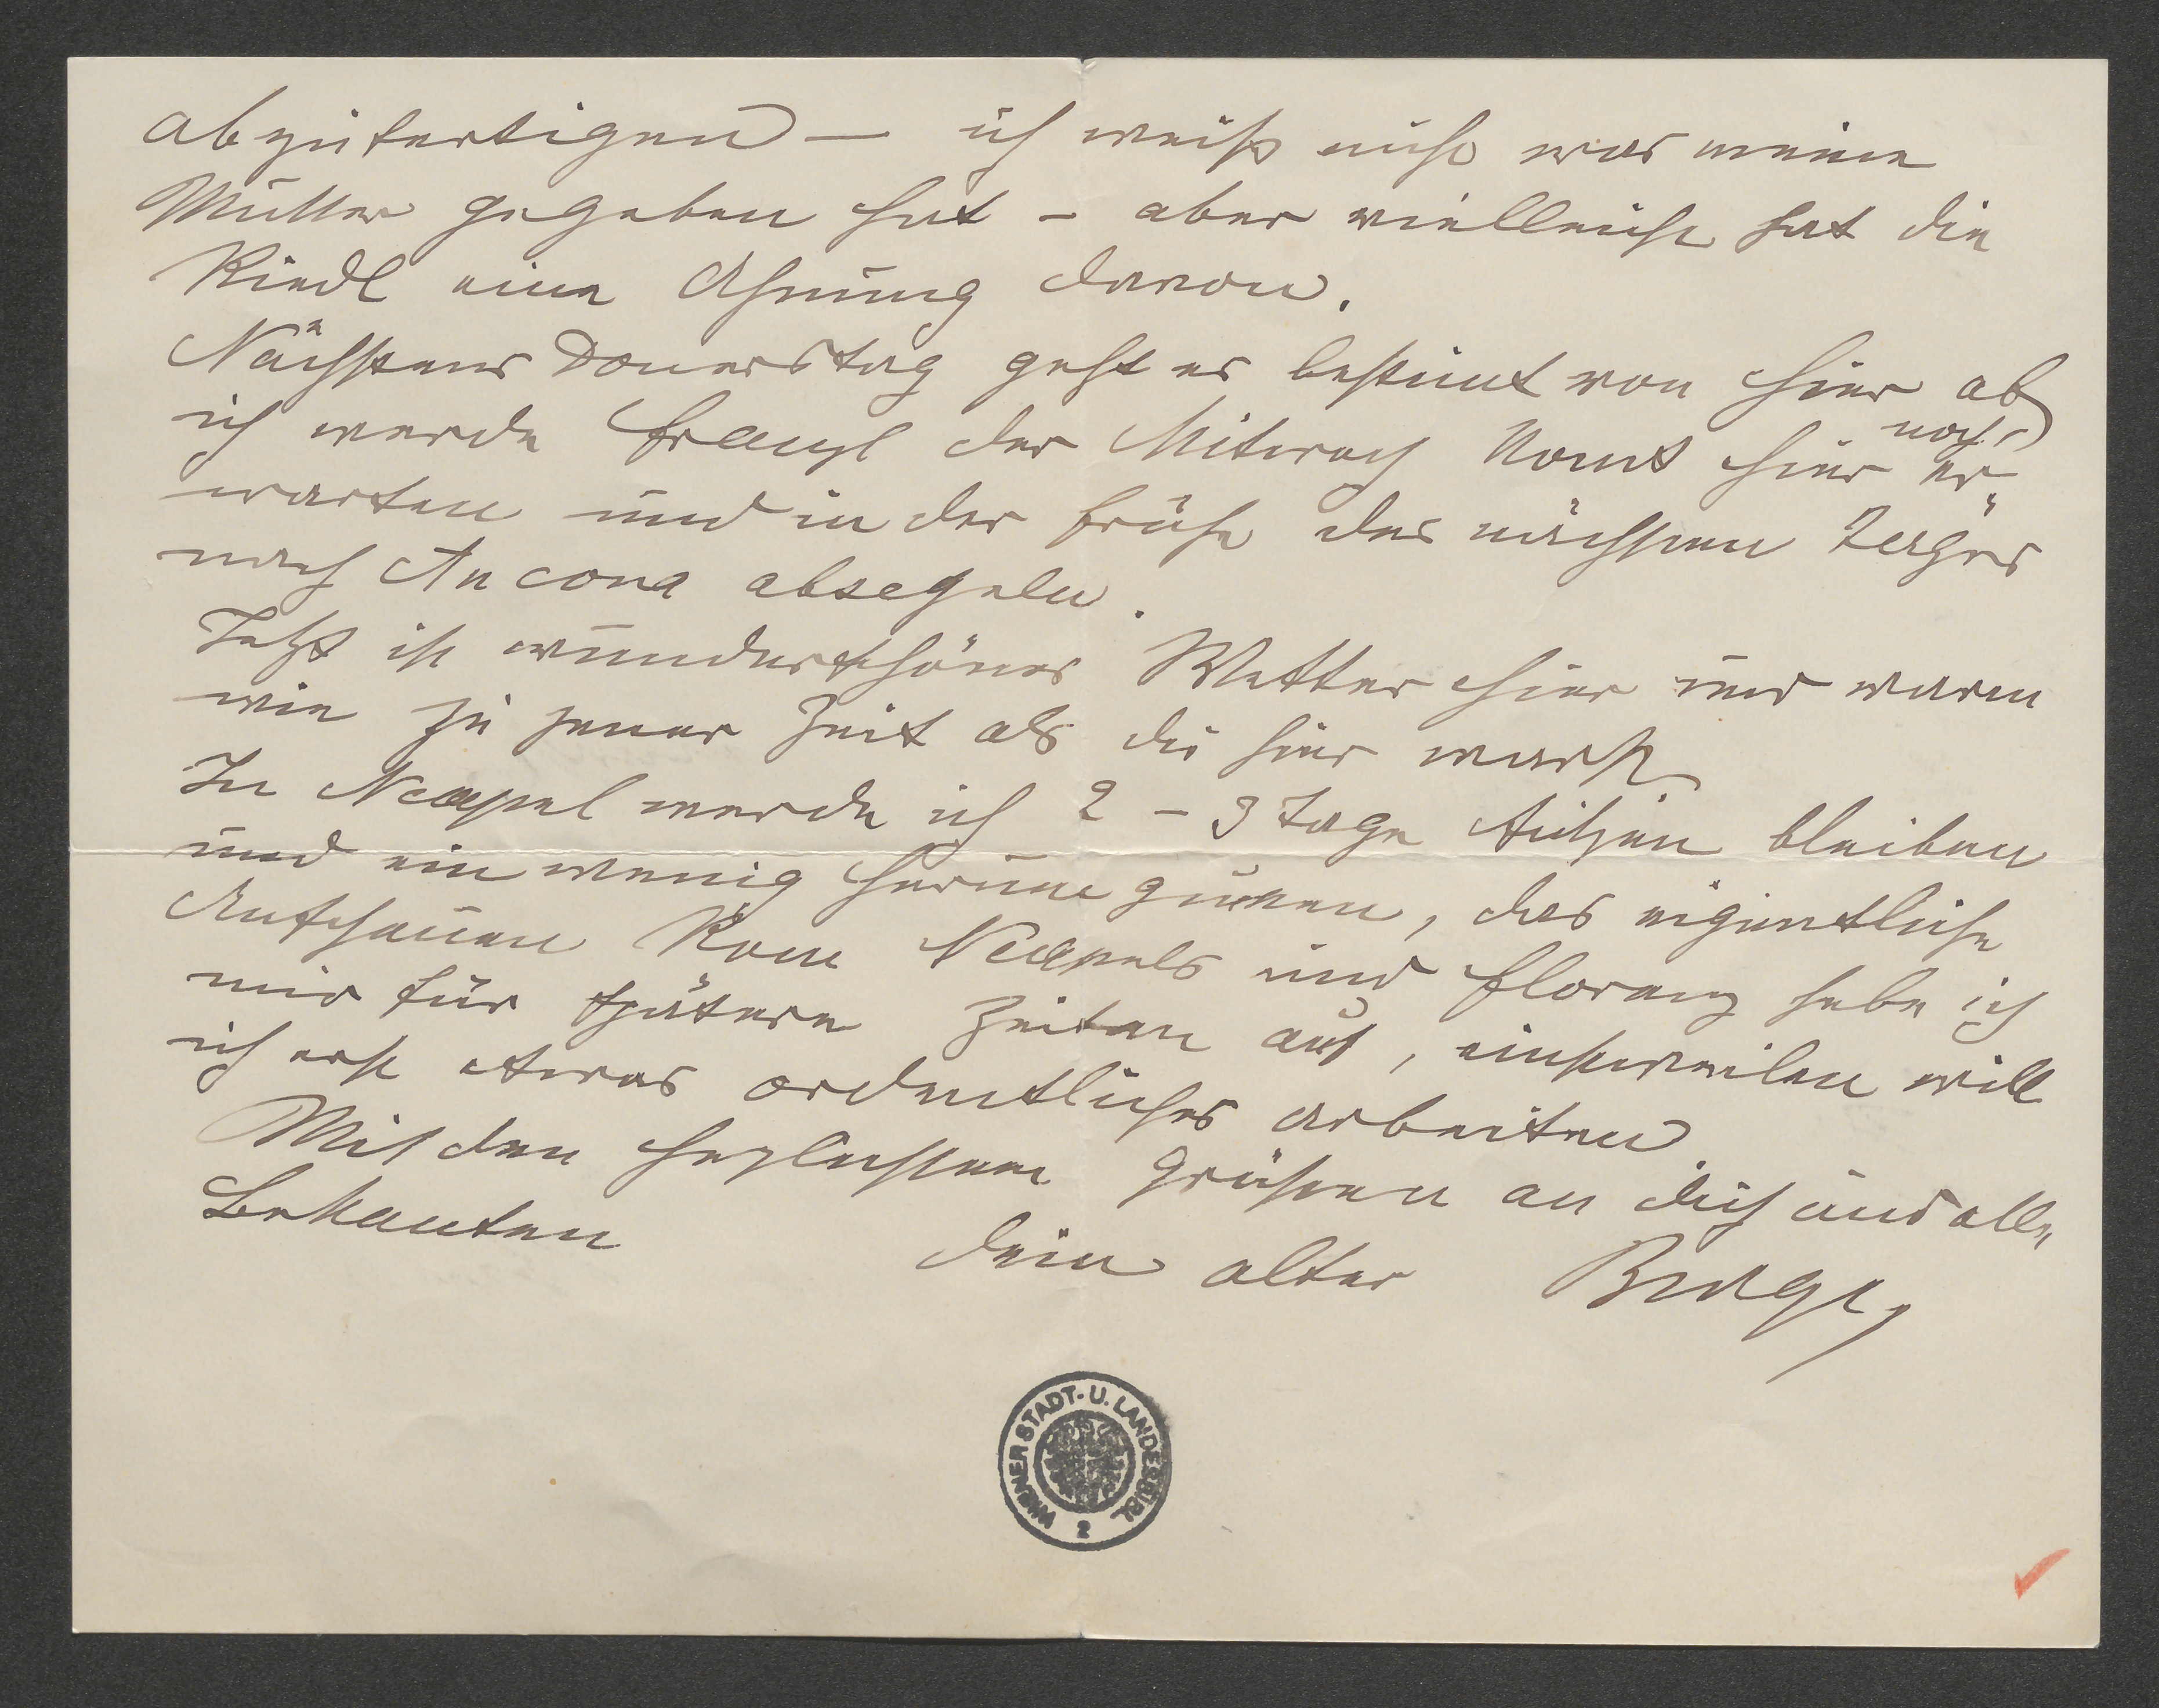 abzufertigen — ich weiß nicht was meine
Mutter gegeben hat – aber vielleicht hat die
Riedl eine Ahnung davon.
Nächstens Donerstag geht es bestimt von hier ab
ich werde Franzl der Mitwoch komt hier noch er
warten und in der Frühe des nächsten Tages
nach Ancona absegeln.
Jetzt ist wunderschönes Wetter hier und warm
wie zu jener Zeit als du hier warst.
In Neapel werde ich 2 – 3 Tage bleiben
und ein wenig herum gucken, das eigentliche
Anschauen Rom Neapels und Florenz hebe ich
mir für spätere Zeiten auf, einstweilen will
ich erst etwas ordentliches arbeiten.
Mit den herzlichsten Grüssen an dich und alle
Bekanten
dein alter
WIENER STADT- U. LANDESBIBL.
2